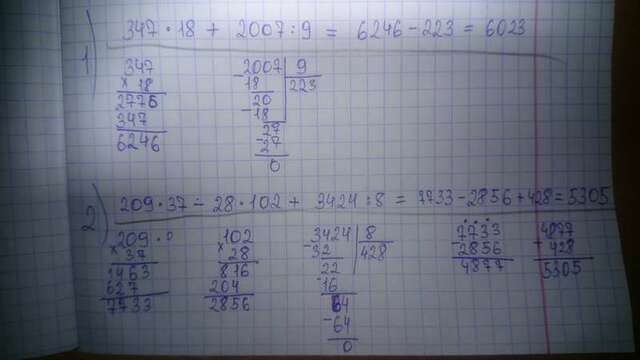 1)
347 · 18 + 2007 : 9 = 6246 - 223 = 6023
347
× 18
2776
347
6246
2007 | 9
-18 | 223
20
-18
27
-27
0
2)
209 · 37 - 28 · 102 + 3424 : 8 = 7733 - 2856 + 428 = 5305
209
× 37
1463
627
7733
102
× 28
816
204
2856
3424 | 8
-32 | 428
22
-16
64
-64
0
7733
-2856
4877
4877
+ 428
5305